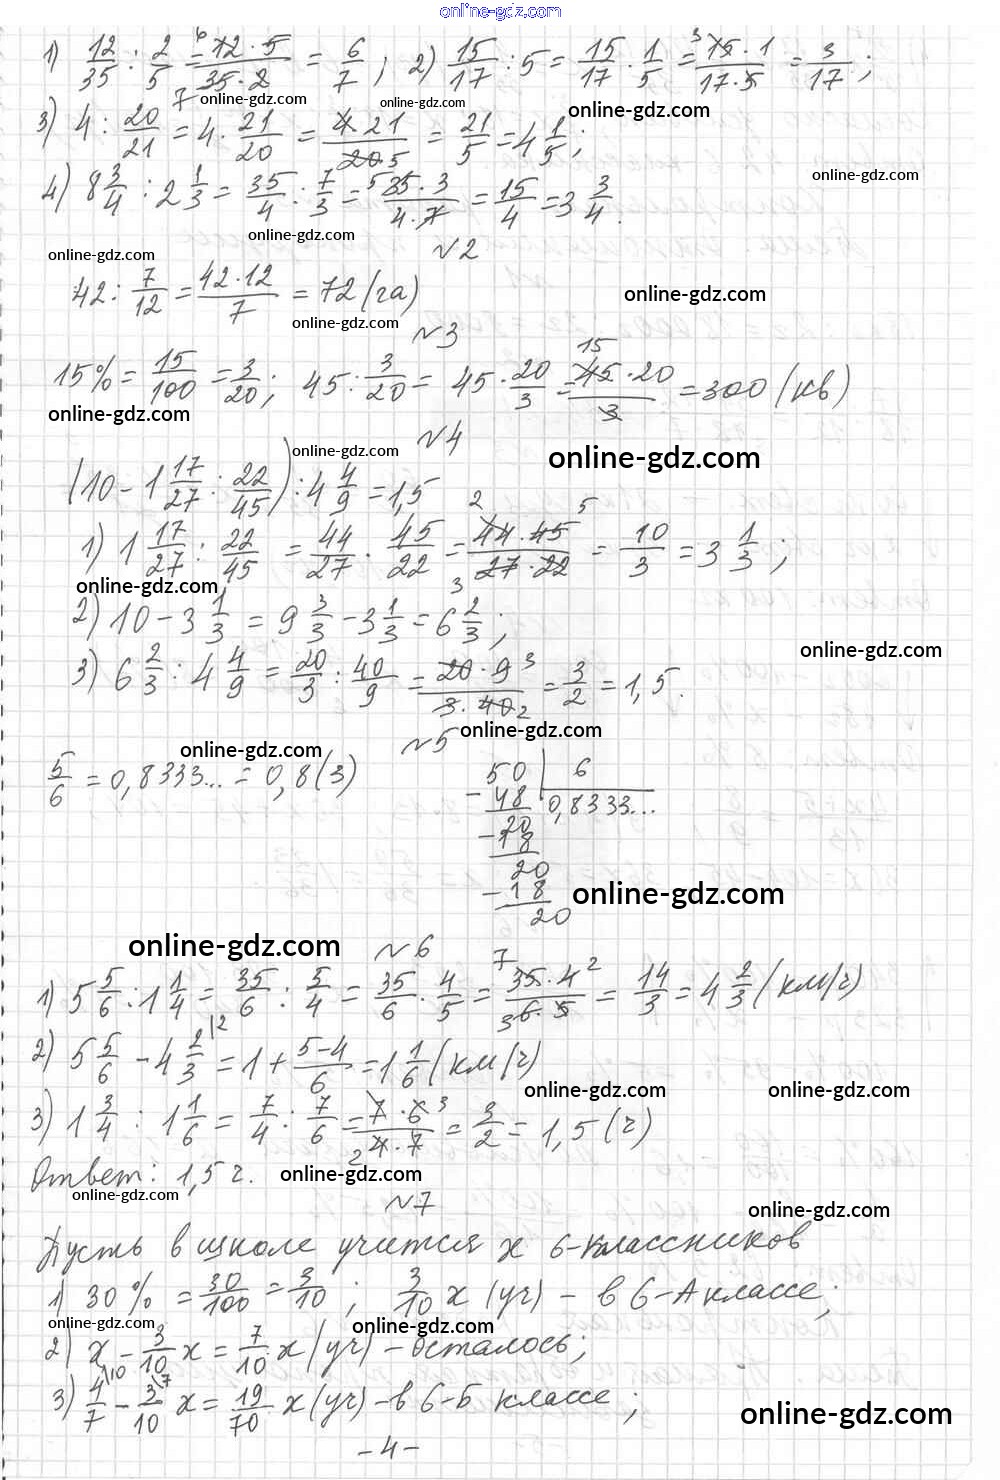 online-gdz.com
1) 12/35 : 2/5 = 12·5/35·2 = 6/7 ; 2) 15/17 : 5 = 15/17 · 1/5 = 15·1/17·5 = 3/17 ;
online-gdz.com online-gdz.com online-gdz.com
3) 4 : 20/21 = 4 · 21/20 = 4·21/20 = 21/5 = 4 1/5 ;
online-gdz.com
4) 8 3/4 : 2 1/3 = 35/4 : 7/3 = 35·3/4·7 = 15/4 = 3 3/4 .
online-gdz.com
№2
online-gdz.com
42 : 7/12 = 42·12/7 = 72 (га)
online-gdz.com
online-gdz.com
№3
15% = 15/100 = 3/20 ; 45 : 3/20 = 45 · 20/3 = 45·20/3 = 300 (кв)
online-gdz.com
№4
online-gdz.com online-gdz.com
(10 - 1 17/27 : 22/45) : 4 4/9 = 1,5
1) 1 17/27 : 22/45 = 44/27 · 45/22 = 44·45/27·22 = 10/3 = 3 1/3 ;
online-gdz.com
2) 10 - 3 1/3 = 9 3/3 - 3 1/3 = 6 2/3 ;
online-gdz.com
3) 6 2/3 : 4 4/9 = 20/3 : 40/9 = 20·9/3·40 = 3/2 = 1,5 .
online-gdz.com
№5
online-gdz.com
5/6 = 0,8333... = 0,8(3)
50 | 6
- 48 | 0,8333...
20
- 18
20
- 18
20
online-gdz.com
online-gdz.com
№6
1) 5 5/6 : 1 1/4 = 35/6 : 5/4 = 35/6 · 4/5 = 35·4/6·5 = 14/3 = 4 2/3 (км/ч)
2) 5 5/6 - 4 2/3 = 1 + 5-4/6 = 1 1/6 (км/ч)
online-gdz.com online-gdz.com
3) 1 3/4 : 1 1/6 = 7/4 : 7/6 = 7·6/4·7 = 3/2 = 1,5 (ч)
Ответ: 1,5 ч.
online-gdz.com
online-gdz.com
№7
online-gdz.com
Пусть в школе учится х 6-классников
1) 30% = 30/100 = 3/10 ; 3/10 х (уч) - в 6-А классе;
online-gdz.com online-gdz.com
2) х - 3/10 х = 7/10 х (уч) - осталось;
3) 4/7 - 3/10 х = 19/70 х (уч) - в 6-Б классе;
online-gdz.com
- 4 -